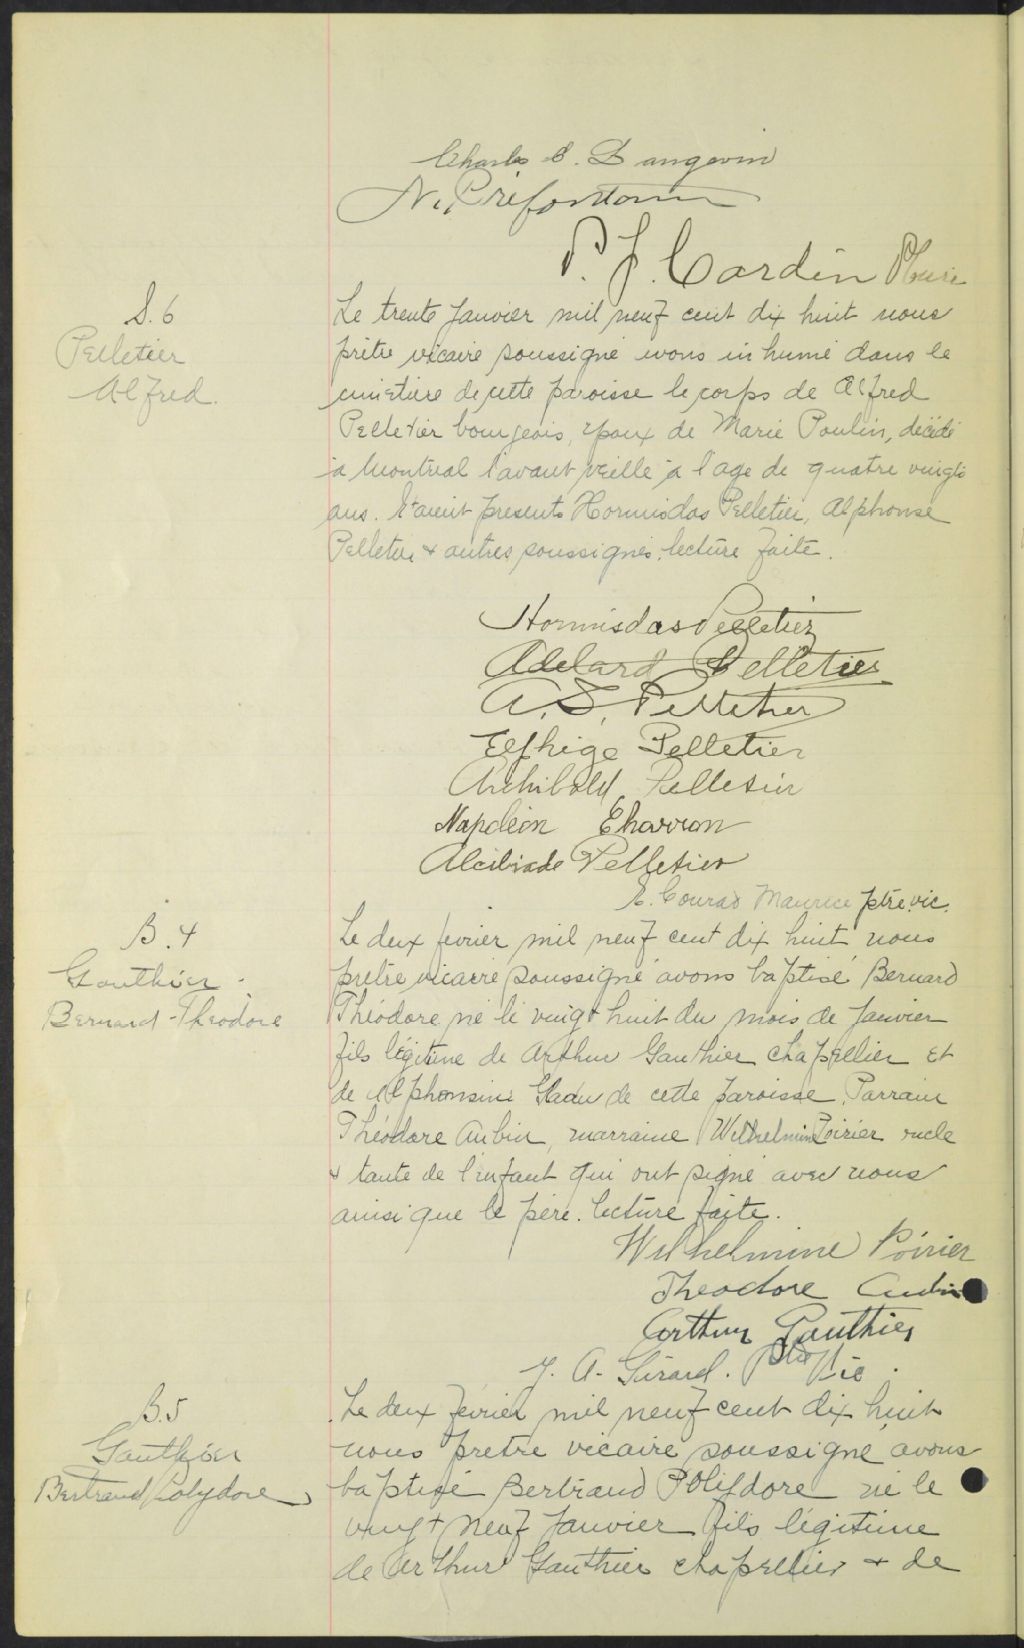 Charles E. Dangevin
N. Préfontaine
P. J. Cardin Ptre Curé
S. 6
Pelletier
Alfred.
Le trente Janvier mil neuf cent dix huit nous
prêtre vicaire soussigné avons inhumé dans le
cimetière de cette paroisse le corps de Alfred
Pelletier bourgeois, époux de Marie Poulin, décédé
à Montréal l'avant veille à l'age de quatre vingts
ans. Etaient presents Hormisdas Pelletier, Alphonse
Pelletier & autres soussignés. lecture faite.
Hormisdas Pelletier
Adelard Pelletier
A. S. Pelletier
Elphige Pelletier
Archibald Pelletier
Napoléon Charron
Alcibiade Pelletier
E. Conrad Maurice ptre. vic.
B. 4
Gauthier -
Bernard-Théodore
Le deux fevrier mil neuf cent dix huit nous
pretre vicaire soussigné avons baptisé Bernard
Théodore né le vingt huit du mois de Janvier
fils légitime de Arthur Gauthier chapellier et
de Alphonsine Gladu de cette paroisse. Parrain
Théodore Aubin, marraine Wilhelmine Poirier oncle
& tante de l'enfant qui ont signé avec nous
ainsi que le père. lecture faite.
Wilhelmine Poirier
Theodore Aubin
Arthur Gauthier
J. A. Girard. Ptre Vic.
B. 5
Gauthier
Bertrand Polydore
Le deux fevrier mil neuf cent dix huit
nous pretre vicaire soussigné avons
baptisé Bertrand Polydore né le
vingt neuf Janvier fils légitime
de Arthur Gauthier chapellier & de